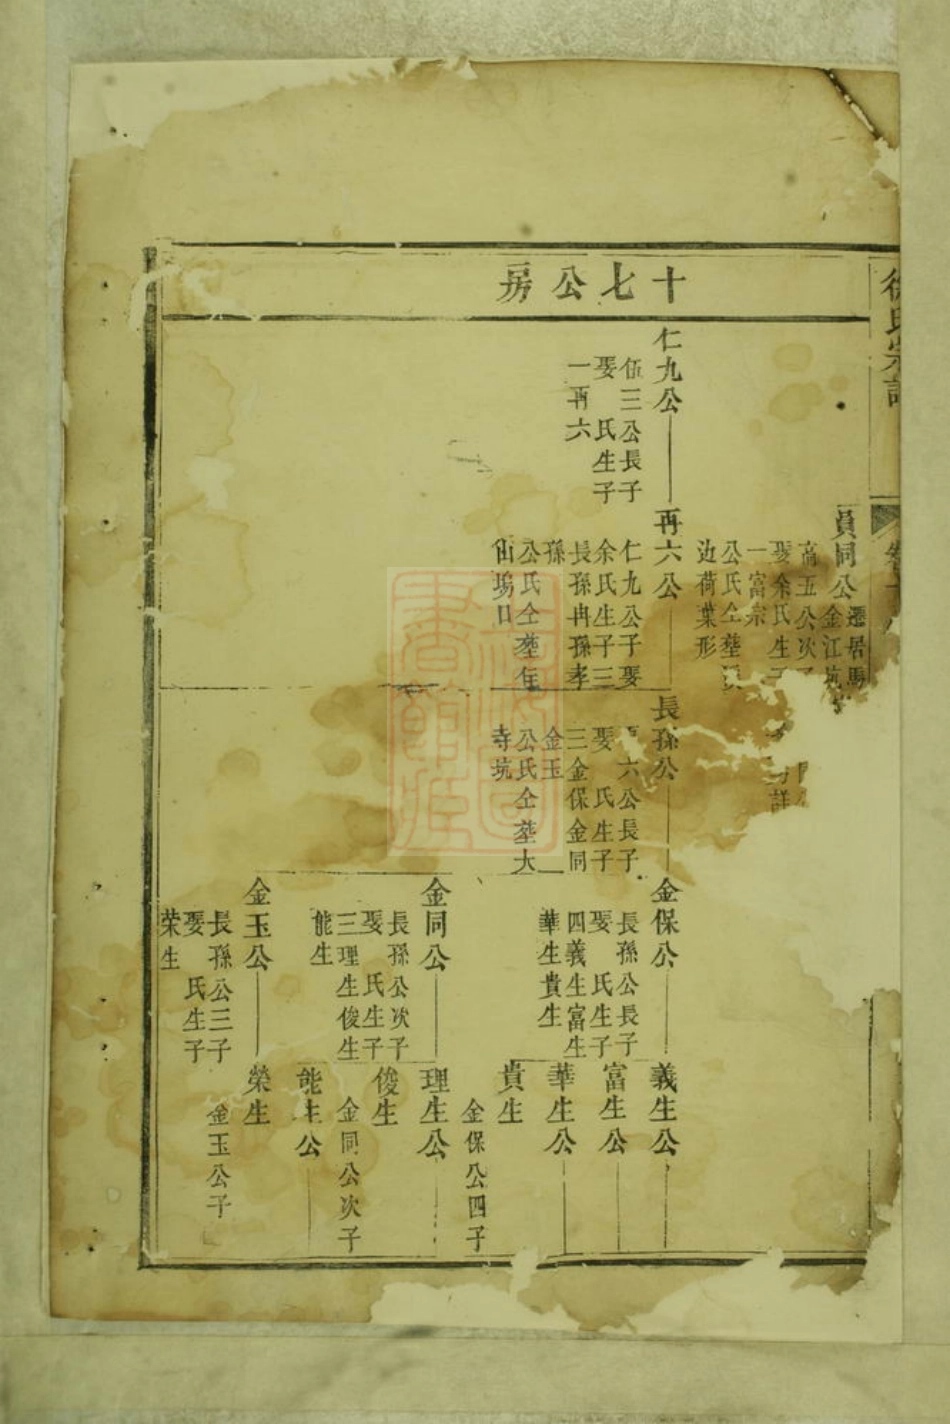 徐氏宗譜
十七公房
員同公
遷居馬
金江坑
高五公次子
娶余氏生子
一富宗
公氏仝塟
边荷葉形
仁九公
伍三公長子
娶 氏生子
一再六
再六公
仁九公子娶
余氏生子三
長孫冉孫孝
孫
公氏仝塟住
山塢口
長孫公
六公長子
娶 氏生子
三金保金同
金玉
公氏仝塟大
寺坑
金保公
長孫公長子
娶 氏生子
四義生富生
華生貴生
金同公
長孫公次子
娶 氏生子
三理生俊生
能生
金玉公
長孫公三子
娶 氏生子
荣生
義生公
富生公
華生公
貴生
金保公四子
理生公
俊生
金同公次子
能生公
榮生
金玉公子